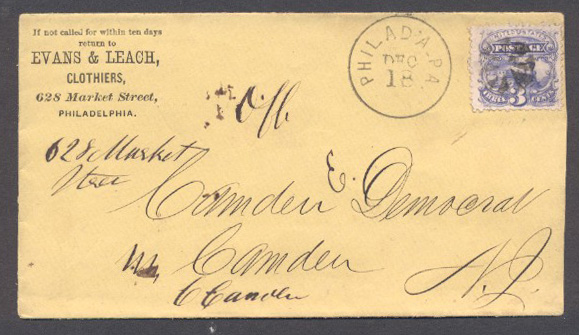 If not called for within ten days
return to
EVANS & LEACH,
CLOTHIERS,
628 Market Street,
PHILADELPHIA.
PHILAD'A. PA.
DEC
18
POSTAGE
THREE 3 CENTS
628 Market
Camden Democrat
Camden
N.J.